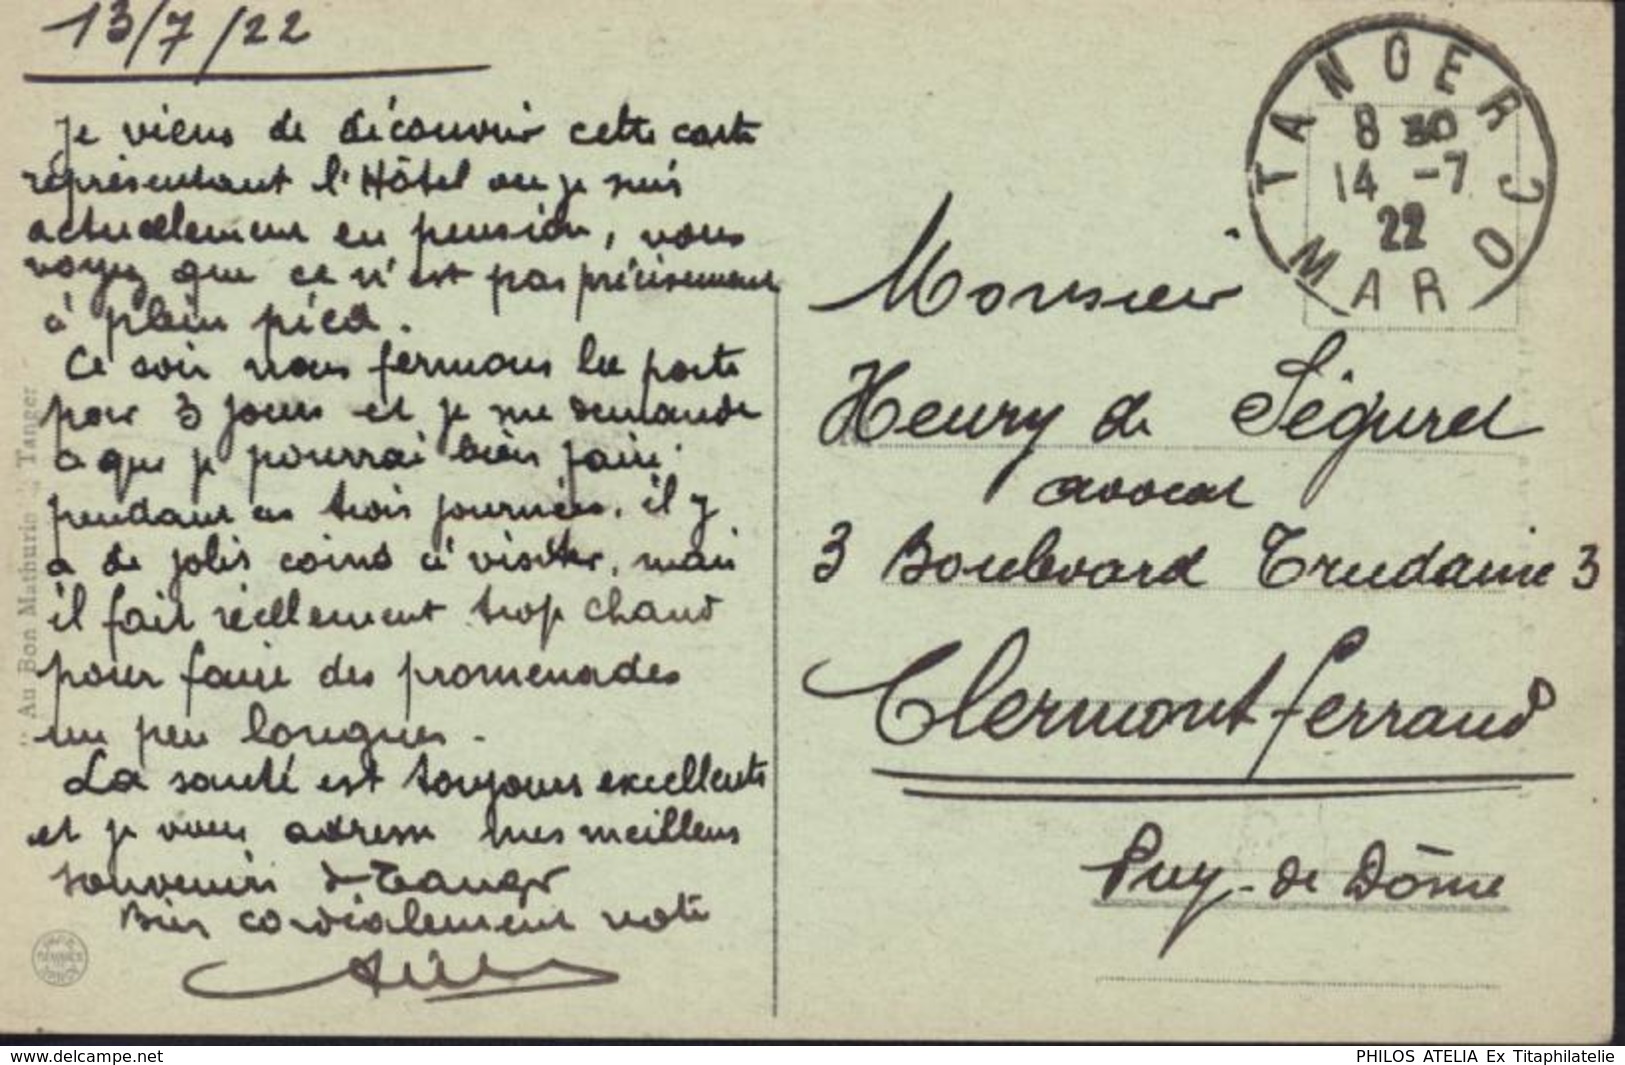 13/7/22
Je viens de découvrir cette carte
représentant l'Hôtel ou je suis
actuellement en pension, vous
voyez que ce n'est pas précisement
à plein pied.
Ce soir nous fermons la porte
pour 3 jours et je me demande
ce que je pourrai bien faire
pendant ces trois journées. il y
a de jolis coins à visiter, mais
il fait réellement trop chaud
pour faire des promenades
un peu longues.
La santé est toujours excellente
et je vous adresse mes meilleurs
souvenirs de Tanger
Bien cordialement votre
"Au Bon Mathurin" Tanger
TANGER
8 30
14 -7
22
MAROC
Monsieur
Henry de Séguret
avocat
3 Boulevard Trudaine 3
Clermont ferrand
Puy-de Dôme
www.delcampe.net
PHILOS ATELIA Ex Titaphilatelie